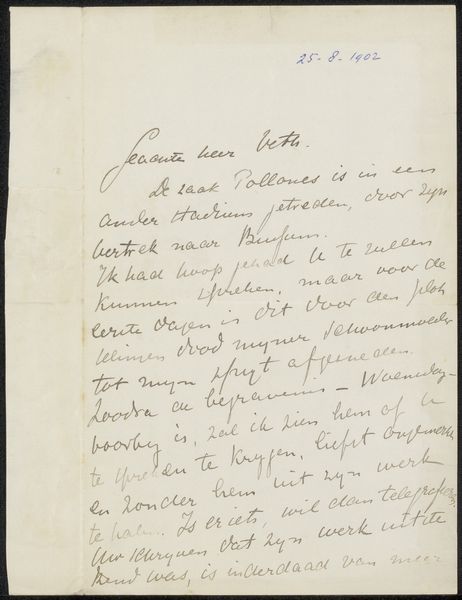 25-8-1902
Geachte heer Veth.
De zaak Pollones is in een
ander stadium getreden, door zijn
vertrek naar Bussum.
Ik had hoop gehad U te zullen
kunnen spreken, maar voor de
eerste dagen is dit door den plot-
selingen dood mijner schoonmoeder
tot mijn spijt afgesneden.
Zoodra de begrafenis – Woensdag –
voorbij is, zal ik zien hem of U
te spreken te krijgen, liefst ongemerkt
en zonder hem uit zijn werk
te halen. Is er iets, wil dan telegrafeeren.
Uw schrijven dat zijn werk uitste-
kend was, is inderdaad van meer